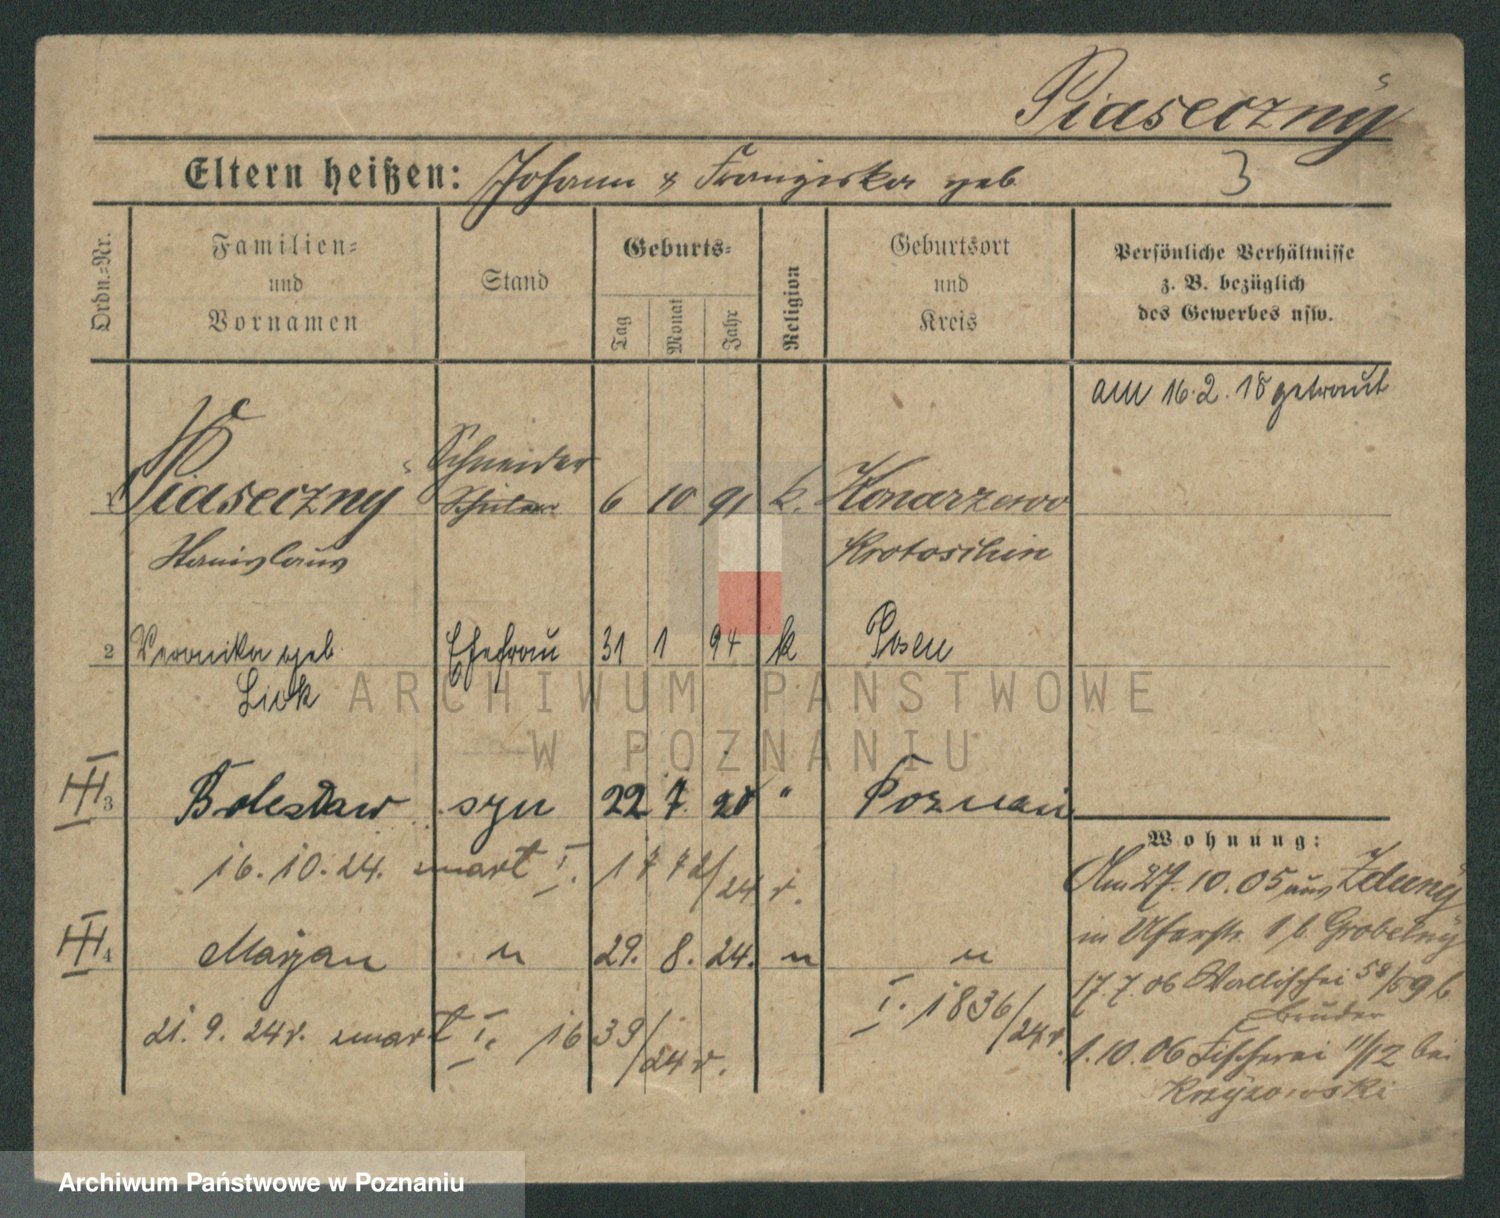 Piaseczny
Eltern heißen: Johann & Franziska geb
3
Ordn.-Nr.
Familien-
und
Vornamen
Stand
Geburts-
Tag
Monat
Jahr
Religion
Geburtsort
und
Kreis
Persönliche Verhältnisse
z. B. bezüglich
des Gewerbes usw.
am 16.2.18 getraut
Schneider
1 Piaseczny Schüler 6 10 91 k. Konarzewo
Stanislaus Krotoschin
2 Veronika geb. Ehefrau 31 1 94 k Posen
ARCHIWUM PAŃSTWOWE
W POZNANIU
III 3 Bolesław syn 22 7 20 " Poznań
16.10.24. umarł I. 1772/24 r.
III 4 Marjan " 29. 8. 24. " "
I. 1836/24 r.
21. 9. 24 r. umarł I. 1639/24 r.
Wohnung:
Am 27.10.05 aus Zduny
in Uferstr. 1 b. Grobelny
17.7.06 Wallischei 58/59 b
Bruder
1.10.06 Fischerei 11/12 bei
Krzyzowski
Archiwum Państwowe w Poznaniu